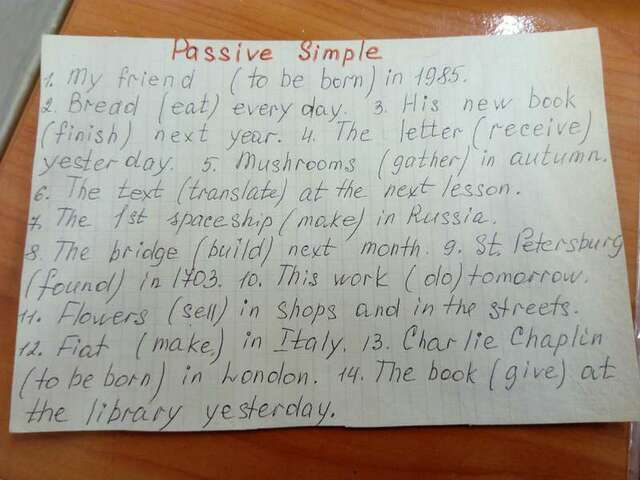 Passive Simple
1. My friend (to be born) in 1985.
2. Bread (eat) every day. 3. His new book
(finish) next year. 4. The letter (receive)
yesterday. 5. Mushrooms (gather) in autumn.
6. The text (translate) at the next lesson.
7. The 1st spaceship (make) in Russia.
8. The bridge (build) next month. 9. St. Petersburg
(found) in 1703. 10. This work (do) tomorrow.
11. Flowers (sell) in shops and in the streets.
12. Fiat (make) in Italy. 13. Charlie Chaplin
(to be born) in London. 14. The book (give) at
the library yesterday.